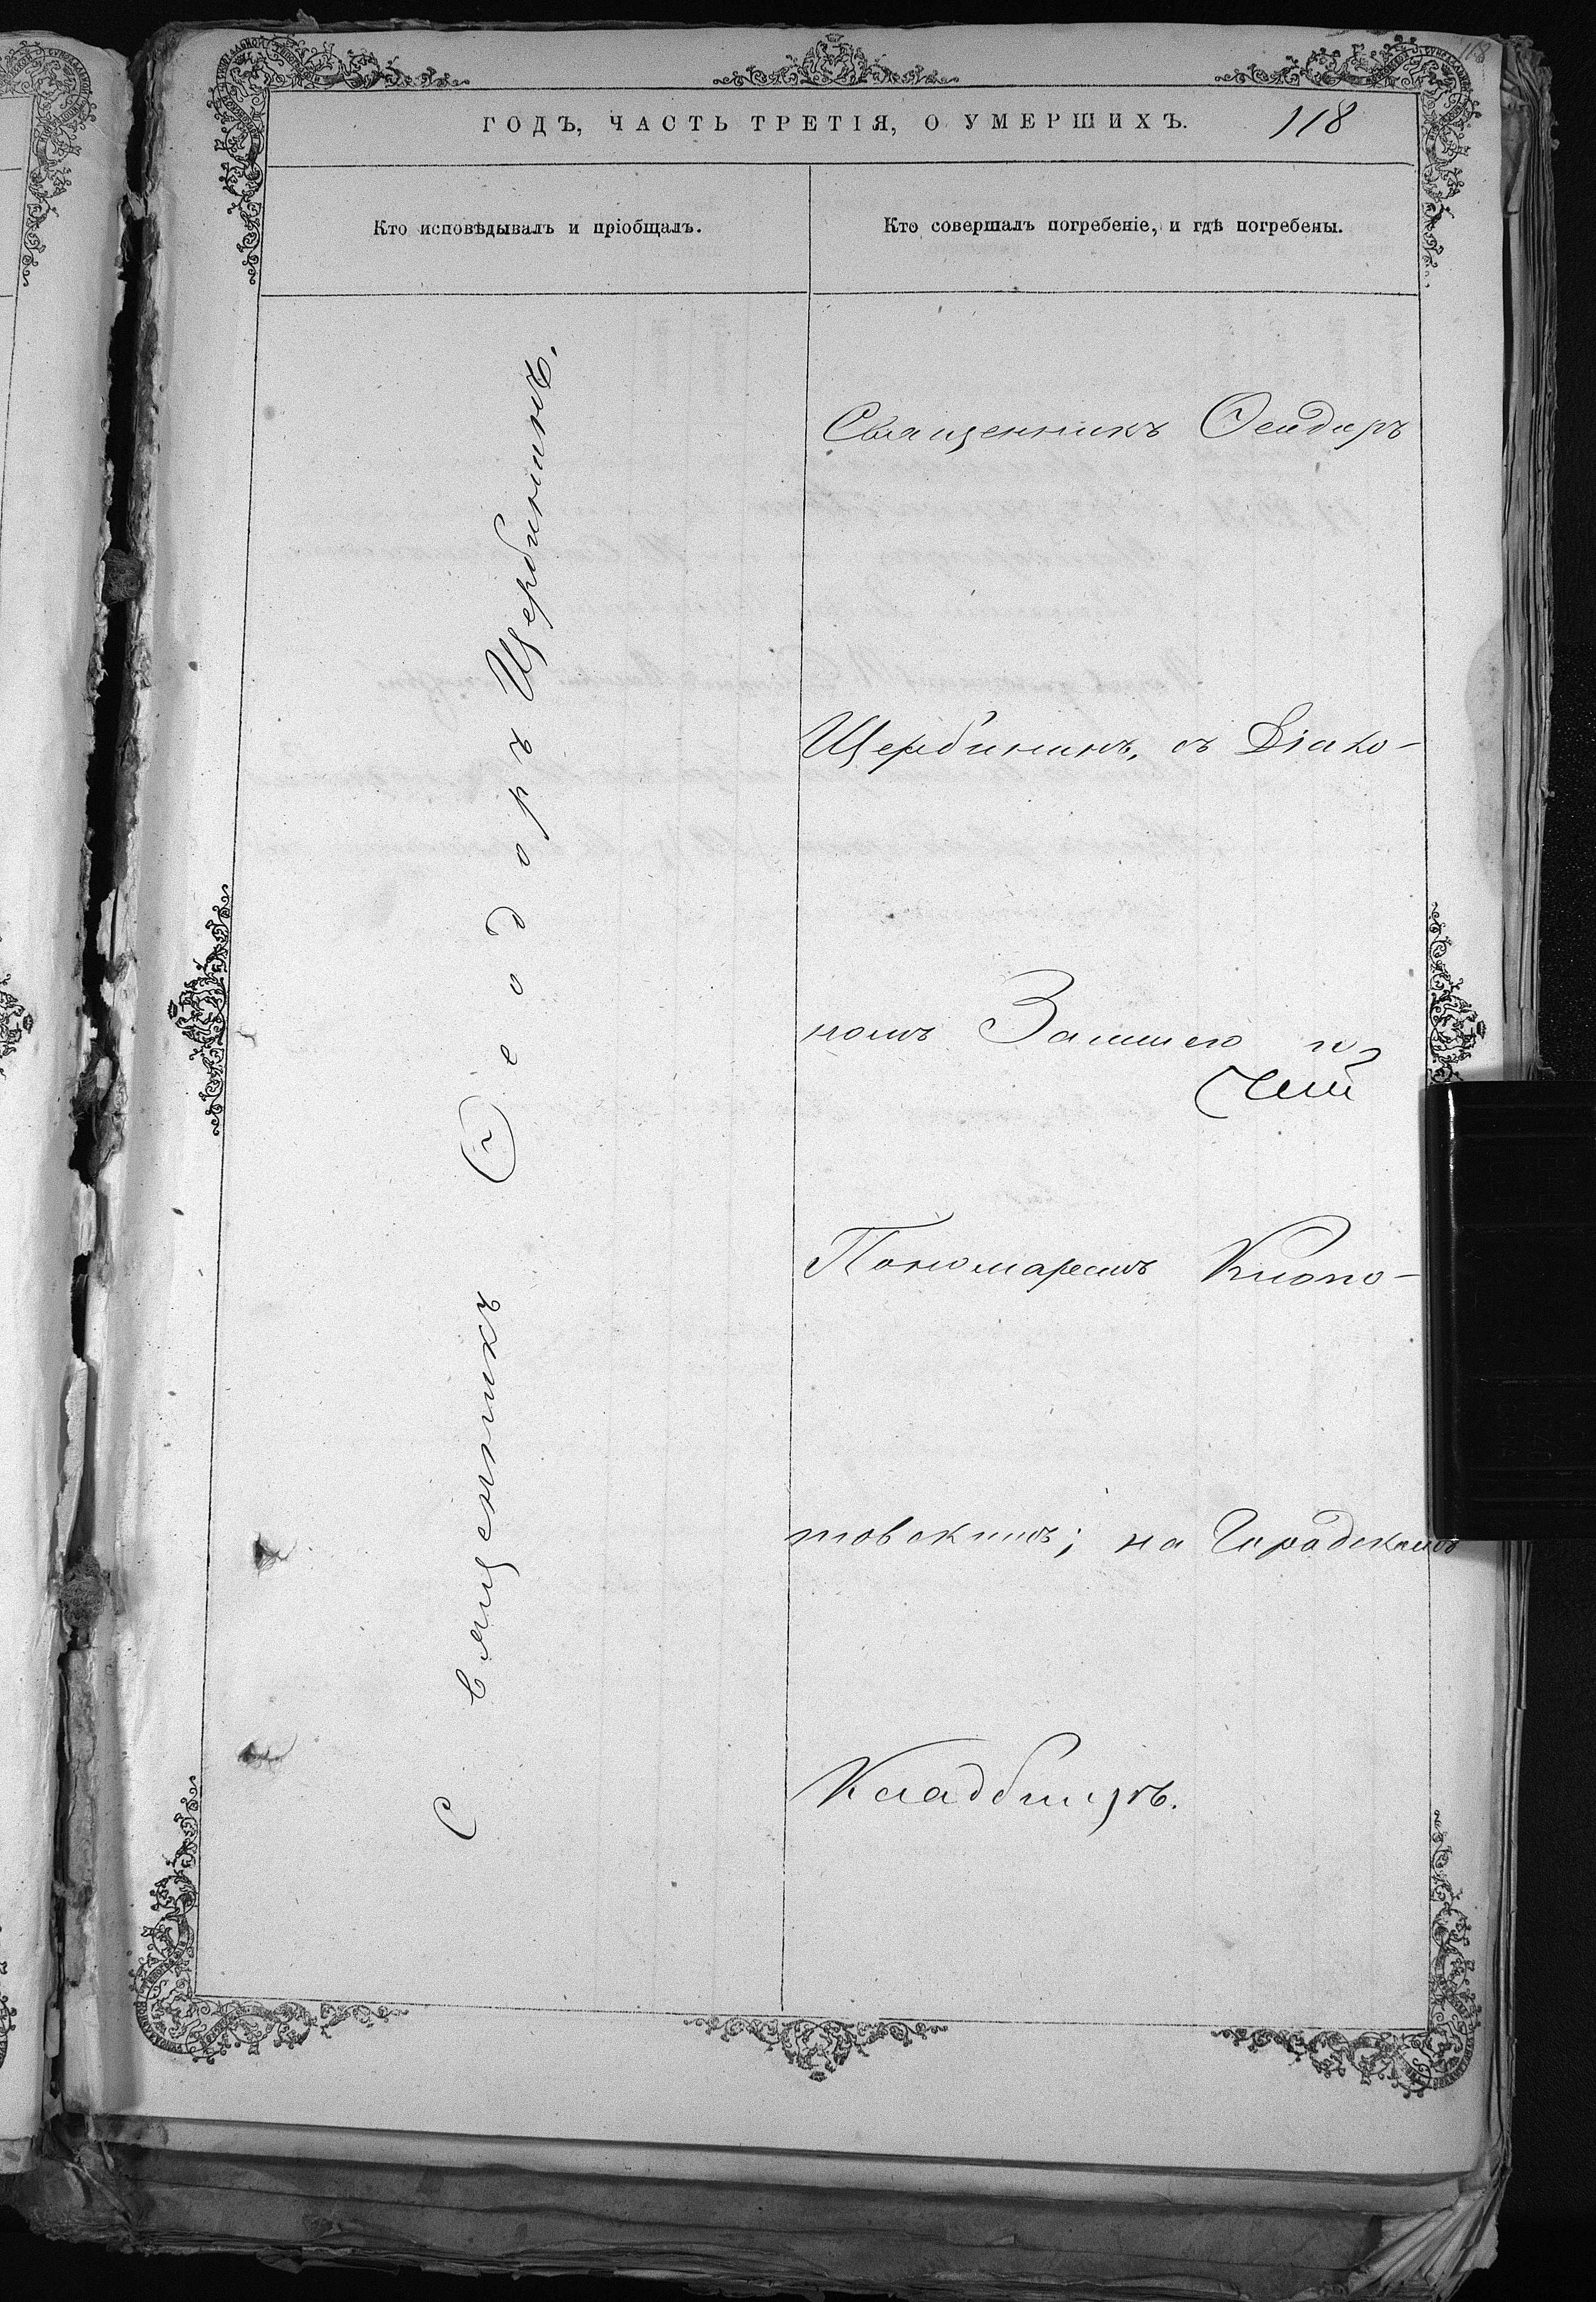 118
ГОДЪ, ЧАСТЬ ТРЕТІЯ, О УМЕРШИХЪ. 118
Кто исповѣдывалъ и пріобщалъ.
Кто совершалъ погребеніе, и гдѣ погребены.
Священникъ Ѳеодоръ Щербининъ.
Священникъ Ѳеодоръ
Щербининъ, съ Діако-
номъ и
Пономаремъ
товскимъ; на Градскомъ
Кладбищѣ.